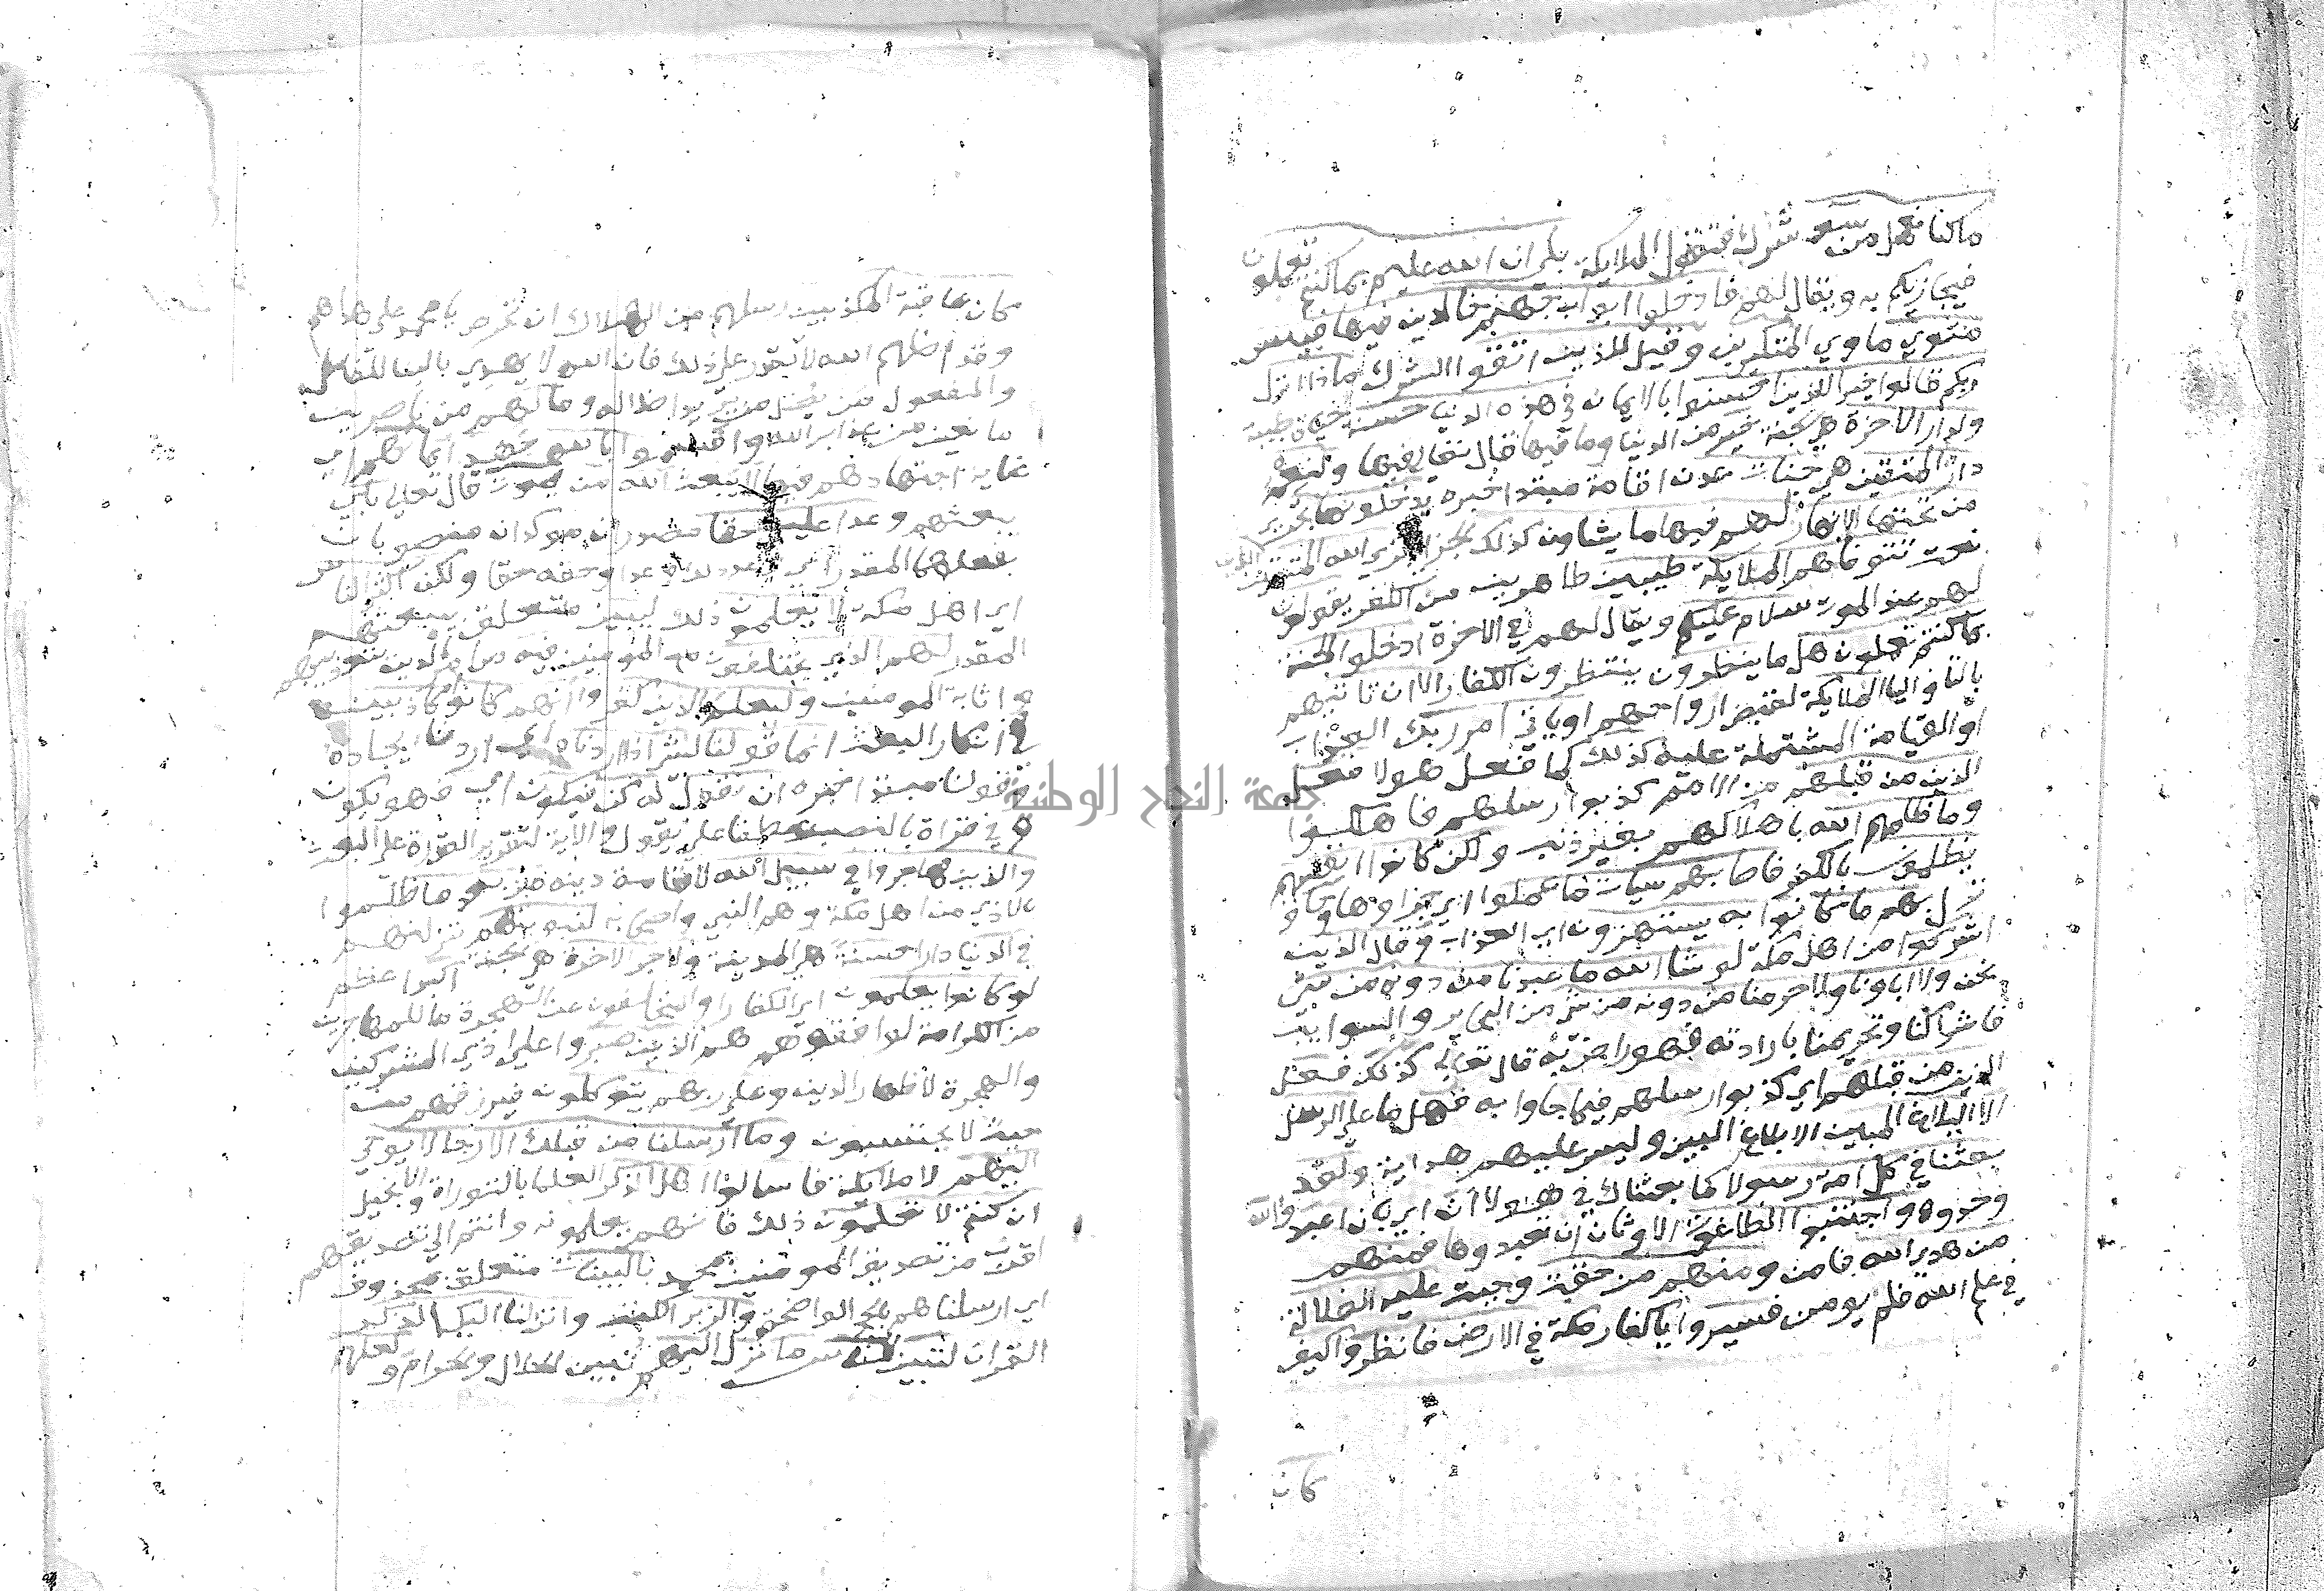 ما كنا نعمل من سوء شرك فتقول الملايكة بلي ان الله عليم بما كنتم تعملون
فيجازيكم به ويقال لهم فادخلوا ابواب جهنم خالدين فيها فبيس
مثوي ماوي المتكبرين وقيل للذين اتقوا الشرك ماذا انزل
ربكم قالوا خيرا للذين احسنوا بالايمان في هذه الدنيا حسنة حياة طيبة
ولدار الاخرة هي الجنة خير من الدنيا وما فيها قال تعالي فيها ولنعم
دار المتقين هي جنات عدن اقامة مبتدا خبره يدخلونها تجري
من تحتها الانهار لهم فيها ما يشاون كذلك الجزا يجزي الله المتقين الذين
نعت تتوفاهم الملايكة طيبين طاهرين من الكفر يقولون
لهم عند الموت سلام عليكم ويقال لهم في الاخرة ادخلوا الجنة
بما كنتم تعملون هل ما ينظرون ينتظرون الكفار الا ان تاتيهم
بالتا واليا الملايكة لقبض ارواحهم او ياتي امر ربك العذاب
او القيامة المشتملة عليه كذلك كما فعل هولا فعل
الذين من قبلهم من الامم كذبوا رسلهم فاهلكوا
وما ظلمهم الله باهلاكهم بغير ذنب ولكن كانوا انفسهم
يظلمون بالكفر فاصابهم سيات ما عملوا اي جزاوها وحاق
نزل بهم ما كانوا به يستهزون اي العذاب وقال الذين
اشركوا من اهل مكة لو شا الله ما عبدنا من دونه من شي
نحن ولا اباونا ولا حرمنا من دونه من شي من البحاير والسوايب
فاشراكنا وتحريمنا بارادته فهو راض به قال تعالي كذلك فعل
الذين من قبلهم اي كذبوا رسلهم فيما جاوا به فهل فما علي الرسل
الا البلاغ المبين الابلاغ البين وليس عليهم هداية ولقد
بعثنا في كل امة رسولا كما بعثناك في هولا ان اي بان اعبدوا الله
وحدوه واجتنبوا الطاغوت الاوثان ان تعبدوها فمنهم
من هدي الله فامن ومنهم من حقت وجبت عليه الضلالة
في علم الله فلم يومن فسيروا يا كفار مكة في الارض فانظروا كيف
كان
كان عاقبة المكذبين رسلهم من الهلاك ان تحرص يا محمد علي هداهم
وقد اضلهم الله لا تقدر علي ذلك فان الله لا يهدي بالبنا للفاعل
والمفعول من يضل من يريد اضلاله وما لهم من ناصرين
مانعين من عذاب الله واقسموا بالله جهد ايمانهم اي
غاية اجتهادهم فيها لا يبعث الله من يموت قال تعالي بلي
يبعثهم وعدا عليه حقا مصدران موكدان منصوبان
بفعلهما المقدر اي وعد ذلك وعدا وحقه حقا ولكن اكثر الناس
اي اهل مكة لا يعلمون ذلك ليبين متعلق بيبعثهم
المقدر لهم الذي يختلفون مع المومنين فيه من امر الدين بتعذيبهم
واثابة المومنين وليعلم الذين كفروا انهم كانوا كاذبين
في انكار البعث انما قولنا لشي اذا اردناه اي اردنا ايجاده
وقولنا مبتدا خبره ان نقول له كن فيكون اي فهو يكون
وفي قراة بالنصب عطفا علي نقول والاية لتقرير القدرة علي البعث
والذين هاجروا في سبيل الله لاقامة دينه من بعد ما ظلموا
بالاذي من اهل مكة وهم النبي واصحابه لنبوينهم ننزلنهم
في الدنيا دارا حسنة هي المدينة ولاجر الاخرة هي الجنة اكبر اعظم
لو كانوا يعلمون اي الكفار او المتخلفون عن الهجرة ما للمهاجرين
من الكرامة لوافقوهم هم الذين صبروا علي اذي المشركين
والهجرة لاظهار الدين وعلي ربهم يتوكلون فيرزقهم من
حيث لا يحتسبون وما ارسلنا من قبلك الا رجالا يوحي
اليهم لا ملايكة فاسالوا اهل الذكر العلما بالتوراة والانجيل
ان كنتم لا تعلمون ذلك فانهم يعلمونه وانتم الي تصديقهم
اقرب من تصديق المومنين بمحمد بالبينات متعلق بمحذوف
اي ارسلناهم بالحجج الواضحة والزبر الكتب وانزلنا اليك الذكر
القران لتبين للناس ما نزل اليهم تبيين الحلال والحرام ولعلهم
جامعة النجاح الوطنية